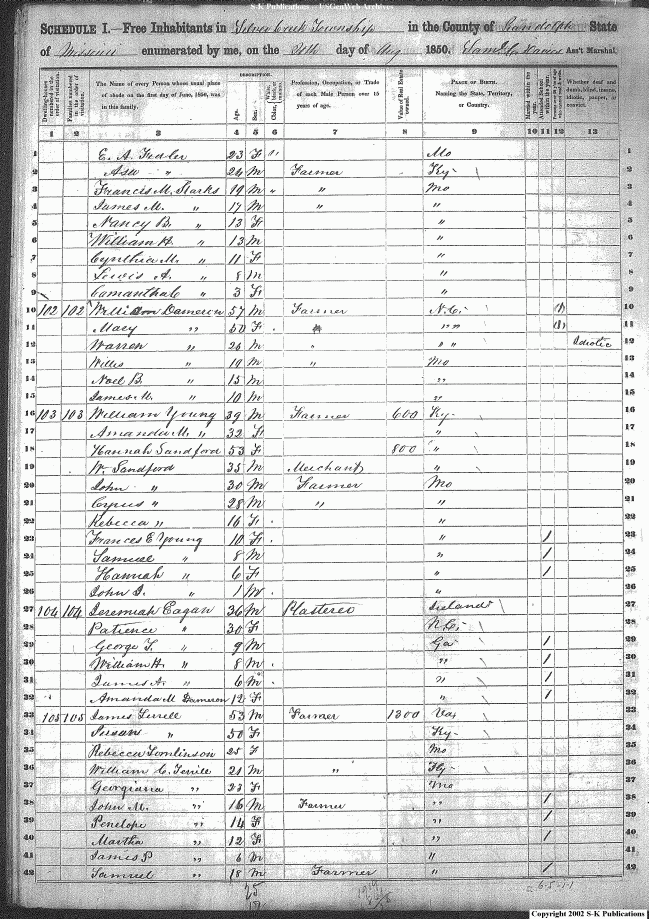 S-K Publications - USGenWeb Archives
SCHEDULE I.—Free Inhabitants in Silver Creek Township in the County of Randolph State
of Missouri enumerated by me, on the day of Aug 1850. Ass't Marshal.
DESCRIPTION.
Dwelling-houses numbered in the order of visitation.
Families numbered in the order of visitation.
The Name of every Person whose usual place of abode on the first day of June, 1850, was in this family.
Age.
Sex.
Profession, Occupation, or Trade of each Male Person over 15 years of age.
Value of Real Estate owned.
PLACE OF BIRTH. Naming the State, Territory, or Country.
Married within the year.
Attended School within the year.
Whether deaf and dumb, blind, insane, idiotic, pauper, or convict.
1 2 3 4 5 6 7 8 9 10 11 12 13
1 E. A. Fedler 23 F " Mo 1
2 Asa " 26 M Farmer Ky 2
3 Francis M. Starks 19 M " " Mo 3
4 James M. " 17 M " " 4
5 Nancy B. " 13 F " 5
6 William H. " 13 M " 6
7 Cynthia M. " 11 F " 7
8 Lewis A. " 8 M " 8
9 Camantha C " 3 F " 9
10 102 102 William Dameron 57 M Farmer N.C. (1) 10
11 Mary " 50 F " " (1) 11
12 Warren " 26 M " " " Idiotic 12
13 Willis " 19 M " Mo 13
14 Noel B. " 15 M " 14
15 James M. " 10 M " 15
16 103 103 William Young 39 M Farmer 600 Ky 16
17 Amanda M. " 32 F " 17
18 Hannah Sandford 53 F 800 " 18
19 W. Sandford 35 M Merchant " 19
20 John " 30 M Farmer Mo 20
21 Cyrus " 28 M " " 21
22 Rebecca " 16 F " 22
23 Frances E Young 10 F " 1 23
24 Samuel " 8 M " 1 24
25 Hannah " 6 F " 1 25
26 John I. " 1 M " 26
27 104 104 Jeremiah Eagan 36 M Plasterer Ireland 27
28 Patience " 30 F N.C. 28
29 George T. " 9 M Ga 1 29
30 William H. " 8 M " 1 30
31 James A. " 6 M " 1 31
32 Amanda M Dameron 12 F " 1 32
33 105 105 James Terrill 53 M Farmer 1300 Va 33
34 Susan " 50 F Ky 34
35 Rebecca Tomlinson 25 F Mo 35
36 William C. Terrill 21 M " Ky 36
37 Georgiana " 23 F Mo 37
38 John M. " 16 M Farmer " 1 38
39 Penelope " 14 F " 1 39
40 Martha " 12 F " 1 40
41 James P " 6 M " 41
42 Samuel " 18 M Farmer " 1 42
25
Copyright 2002 S-K Publications